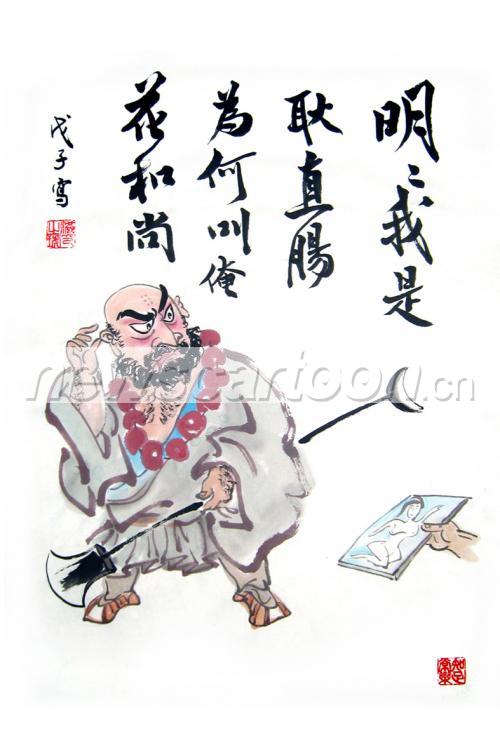 明〻我是
耿直腸
為何叫俺
花和尚
戊子寫
newscartoon.cn